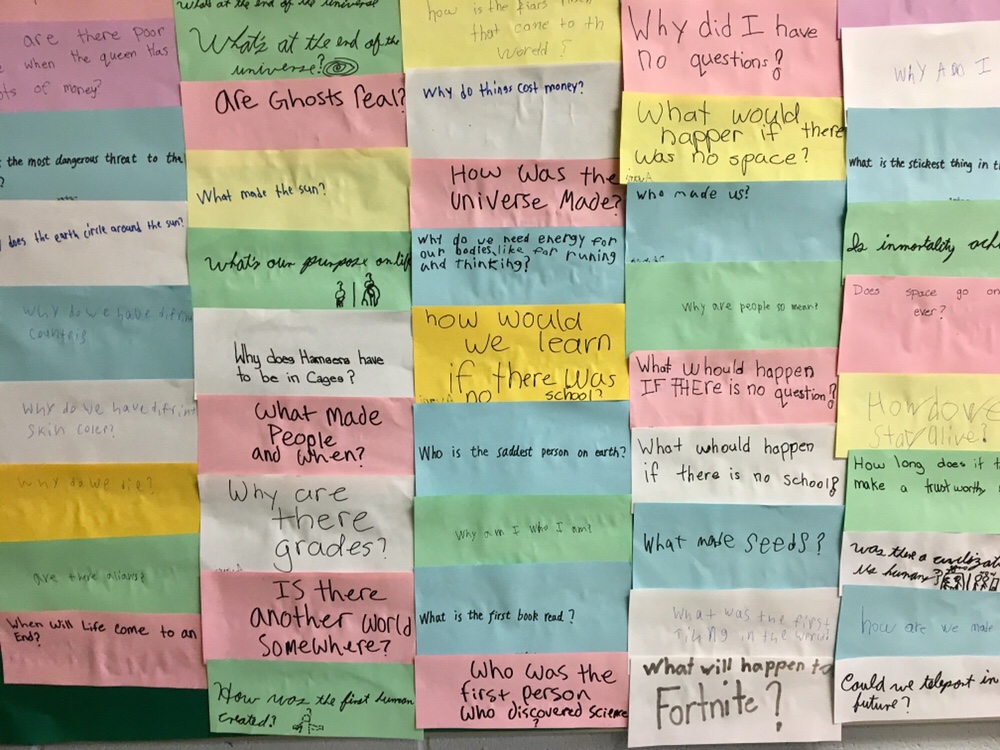 are there poor
when the queen Has
ots of money?
the most dangerous threat to the
?
does the earth circle around the sun?
Why do we have difrint
countris
Why do we have difrint
skin coler?
Why do we die?
are there alians?
When will Life come to an
End?
What's at the end of the universe
What's at the end of the
universe?
are Ghosts real?
What made the sun?
What's our purpose on life
Why does Hamsers have
to be in Cages?
What made
People
and when?
Why are
there
grades?
Is there
another world
Somewhere?
How was the first human
created?
how is the
that come to th
World?
Why do things cost money?
How Was the
Universe Made?
Why do we need energy for
our bodies, like for runing
and thinking?
how would
we learn
if there was
no school?
Who is the saddest person on earth?
Why am I who I am?
What is the first book read?
Who was the
first person
Who discovered science
Why did I have
no questions?
What would
happer if there
was no space?
who made us?
Why are people so mean?
What whould happen
IF THEre is no question?
What whould happen
if there is no school?
What made seeds?
What was the first
thing in the world
What will happen to
Fortnite?
WHY AM I
What is the stickest thing in t
Is inmortality
Does space go on
ever?
How do we
stay alive?
How long does it t
make a trustworthy
was there a
like humans
how are we made
Could we teleport in
future?